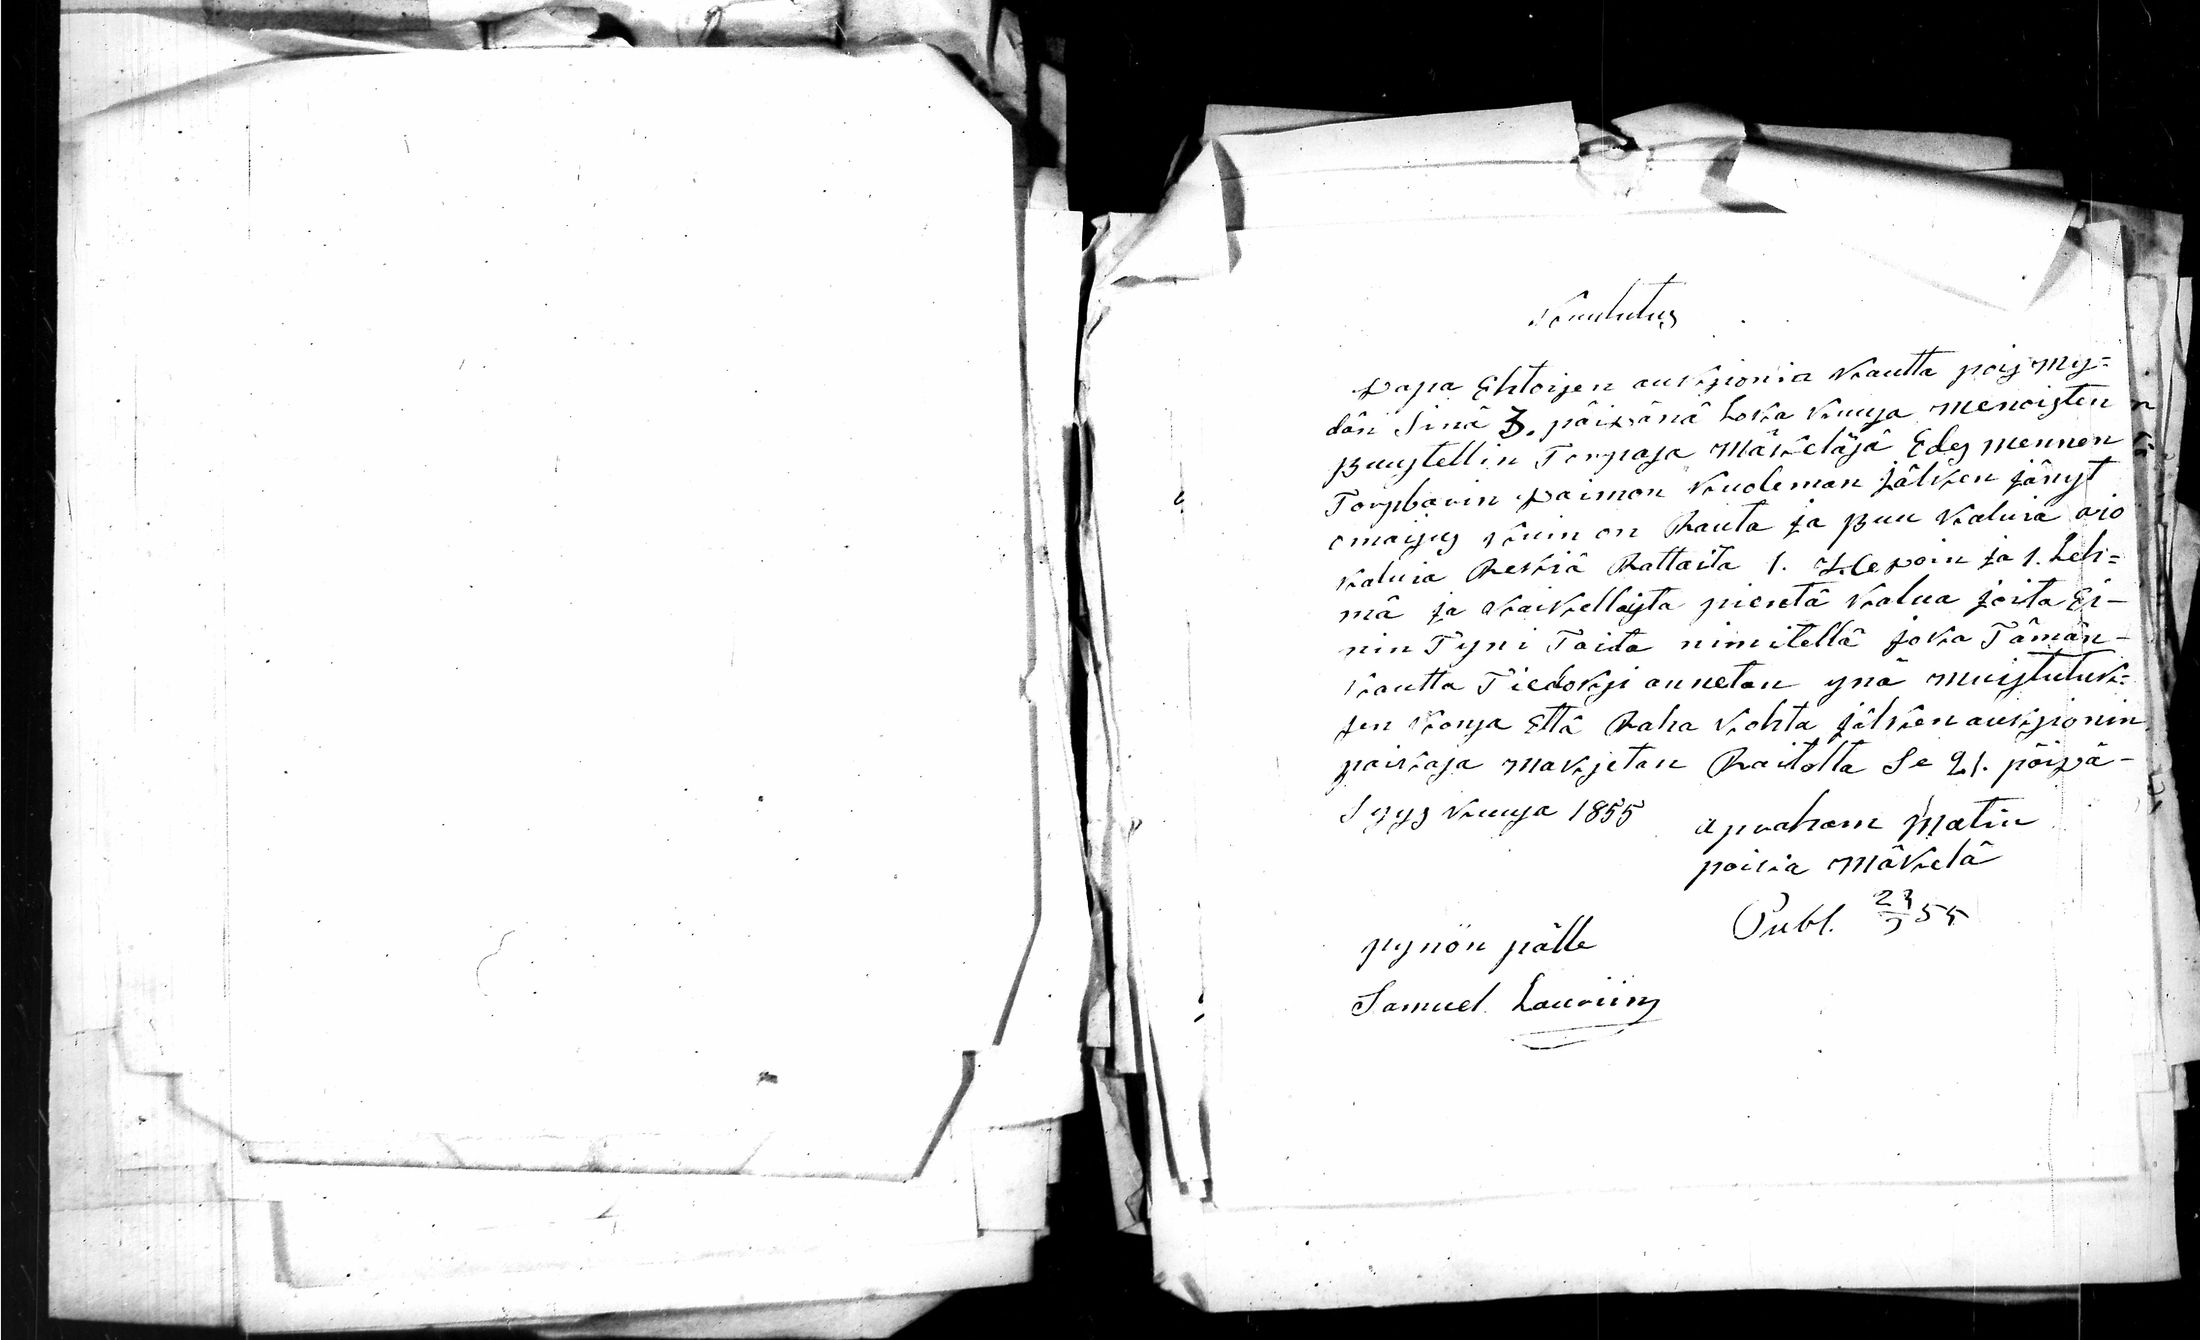 Kuulutus
Vapa Ehtoisen auksionin kautta pois my=
dän Sinä 3. päivänä Loka kuusa menoisten
Buustellin Torpasa Mäkeläsä Edes mennen
Torpbarin Vaimon kuoleman jälken jänyt
omaisus kuin on Rauta ja Buu kaluia ajo
kaluia Rekiä Rattaita 1. Hevoin ja 1. Leh=
mä ja kaikellaista pientä kalua joita Ei-
nin Tyni Taida nimitellä joka Tämän-
kautta Tiedoksi annetan ynä muistutuk=
sen kansa Että Raha kohta jälken auksionin
paikasa maksetan Raitolta Se 21. päivä-
Syys kuusa 1855
Apraham Matin
poika Mäkelä
Publ. 23/9 55
pynön pälle
Samuel Lauriins